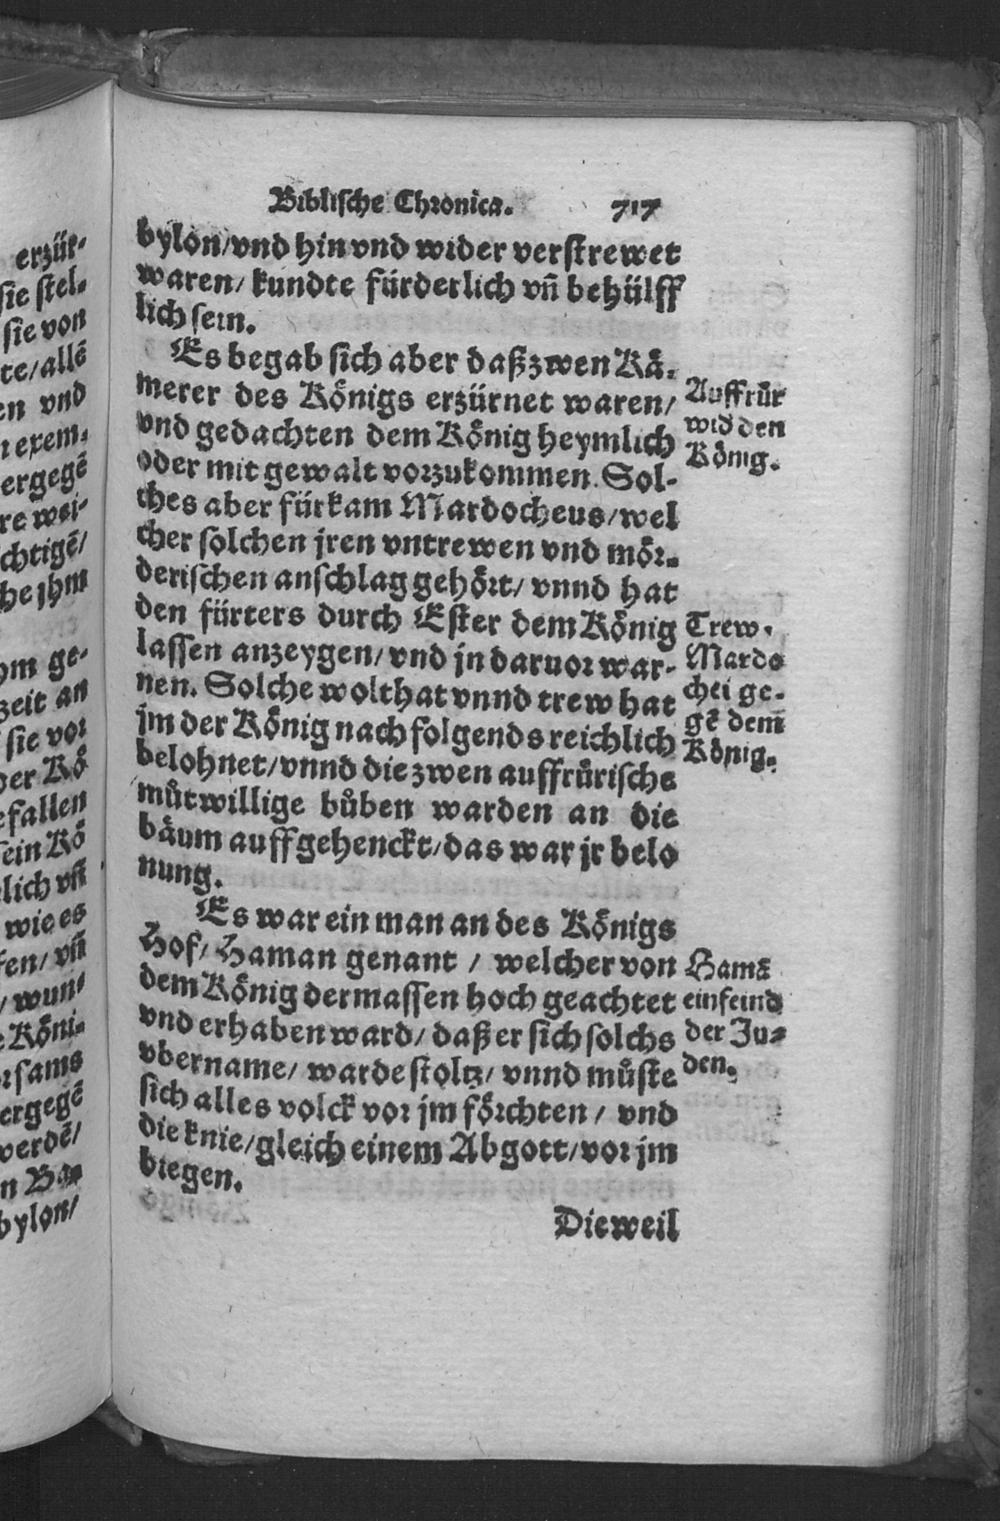 erzür-
sie stel-
sie von
te/allē
en vnd
n exem-
ergegē
re wei-
chtigē/
he jhm
om ge-
zeit an
sie vor
der Kö
efallen
sein Kö
lich vñ
wie es
fen/vñ
/wun-
e Köni-
orsams
ergegē
werdē/
n Ba-
bylon/
Biblische Chronica. 717
bylon/vnd hin vnd wider verstrewet
waren/ kundte fürderlich vñ behülff
lich sein.
Es begab sich aber daß zwen Kä-
merer des Königs erzürnet waren/
vnd gedachten dem König heymlich
oder mit gewalt vorzukommen. Sol-
ches aber fürkam Mardocheus/wel
cher solchen jren vntrewen vnd mör-
derischen anschlag gehört/ vnnd hat
den fürters durch Ester dem König
lassen anzeygen/vnd jn daruor war-
nen. Solche wolthat vnnd trew hat
jm der König nachfolgends reichlich
belohnet/vnnd die zwen auffrůrische
můtwillige bůben warden an die
bäum auffgehenckt/das war jr belo
nung.
Es war ein man an des Königs
Hof/ Haman genant / welcher von
dem König dermassen hoch geachtet
vnd erhaben ward/ daß er sich solchs
vbername/ warde stoltz/ vnnd můste
sich alles volck vor jm förchten / vnd
die knie/gleich einem Abgott/vor jm
biegen.
Dieweil
Auffrůr
wid den
König.
Trew
Mardo
chei ge-
gē dem
König.
Hamā
ein feind
der Ju-
den.